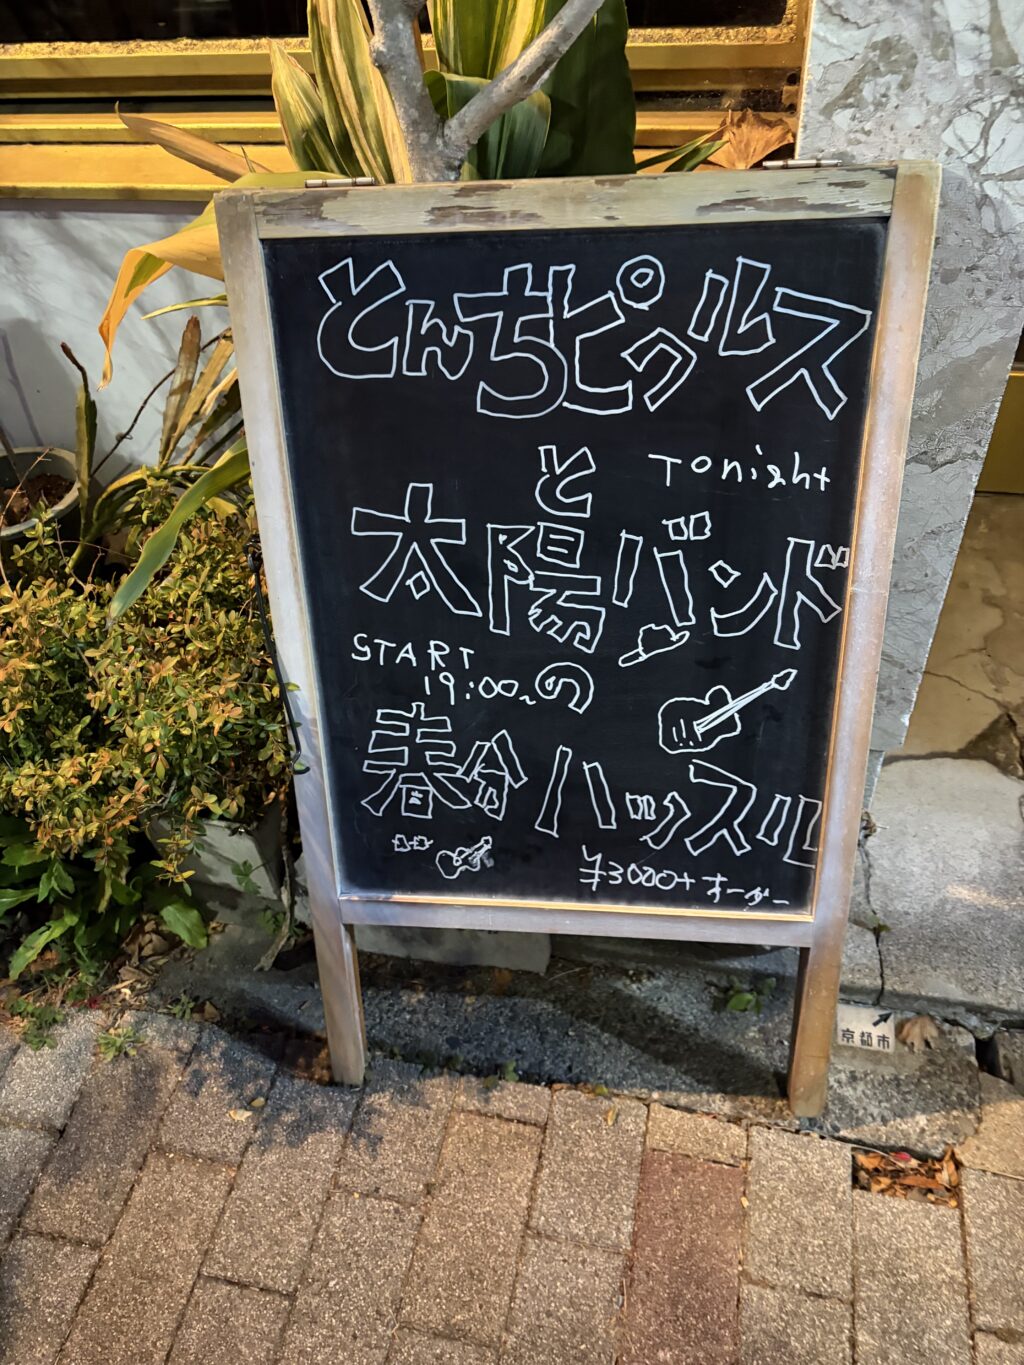 とんちピクルス
と
Tonight
太陽バンド
START
19:00~
の
春分ハッスル
¥3000+オーダー
京都市